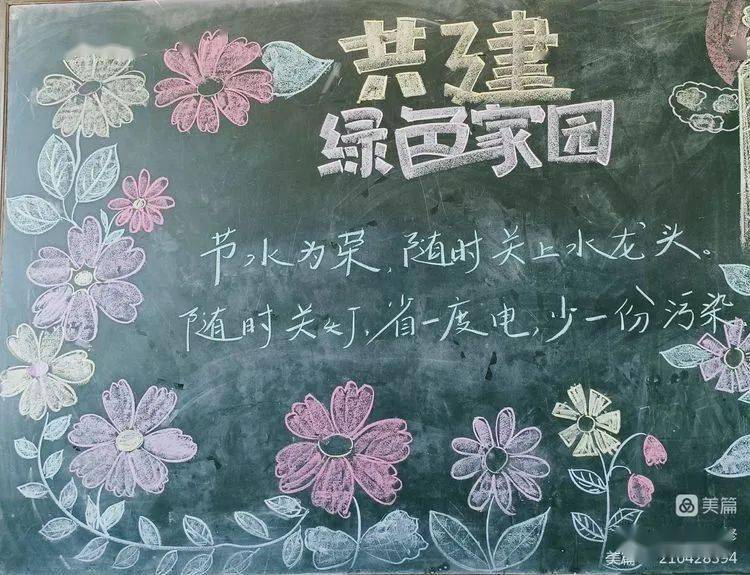 共建
绿色家园
节水为荣,随时关上水龙头。
随时关灯,省一度电,少一份污染
美篇
美篇 210428394